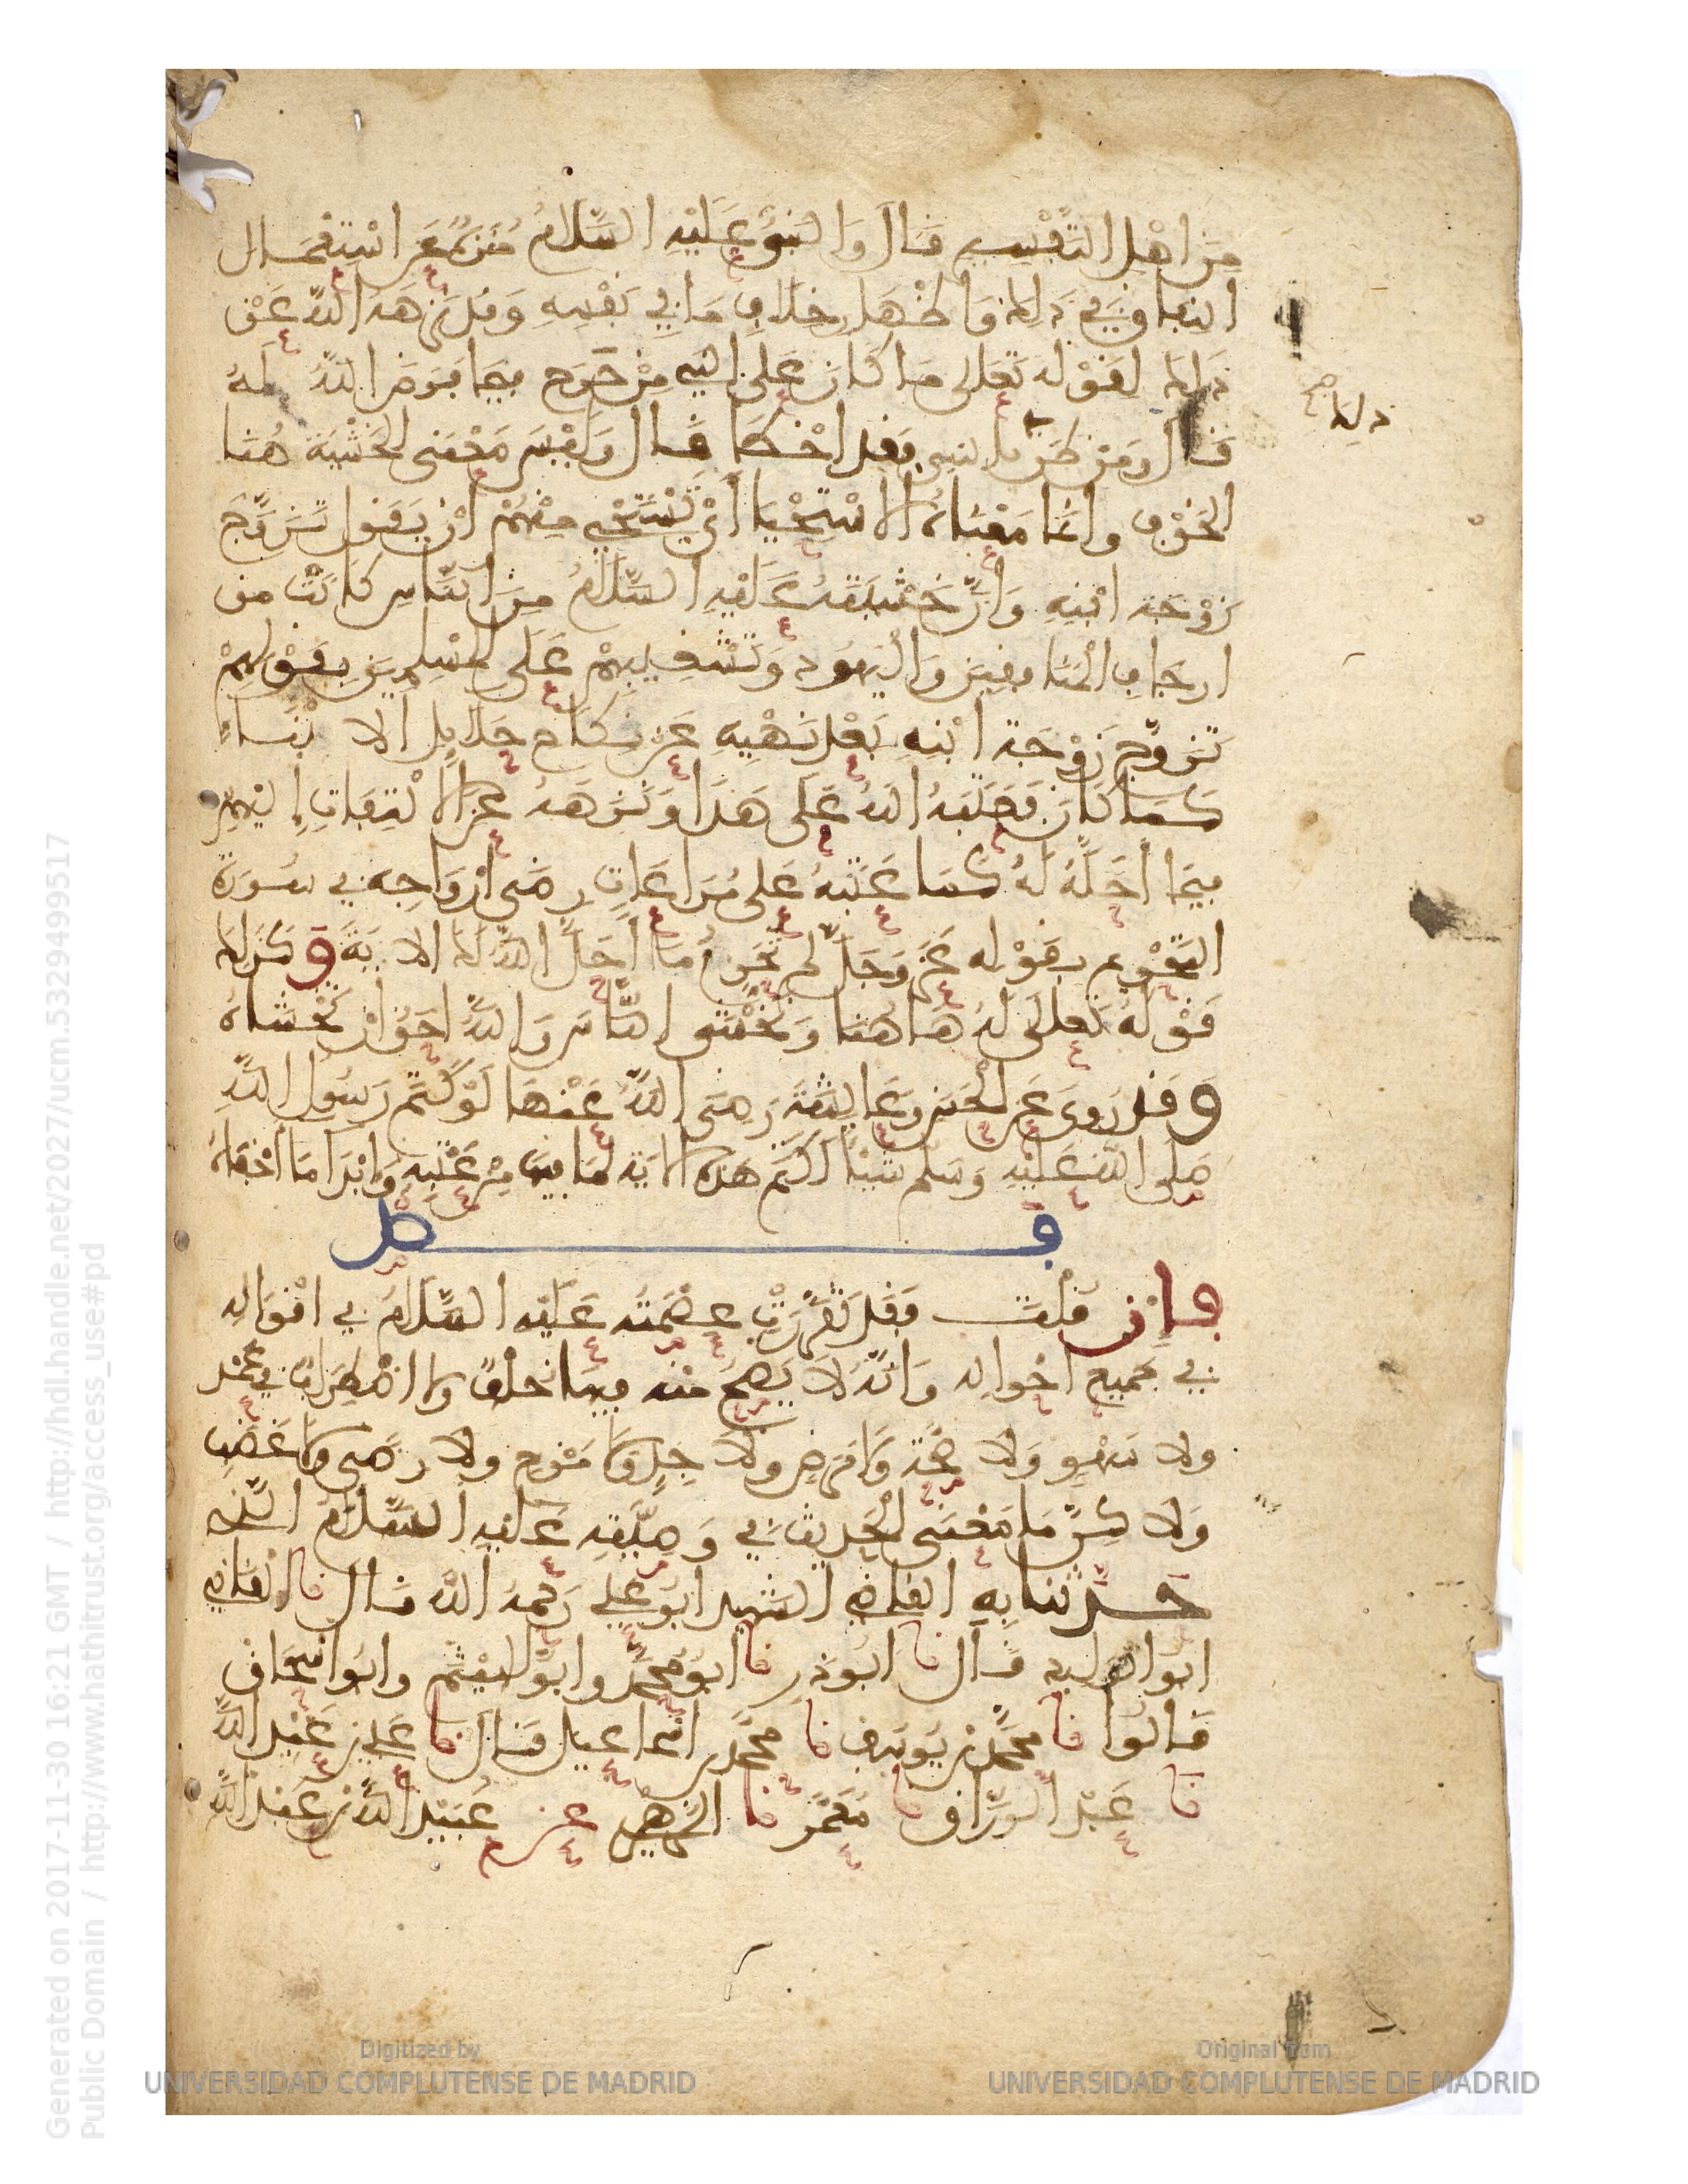 من اهل التفسير قال والنبي عليه السلام منزه عن استعمال
النفاق في ذلك واظهار خلاف ما في نفسه وقد نزهه الله عن
ذلك لقوله تعلى ما كان على النبي من حرج فيما فرض الله له
ذلك
قال ومن ظن بالنبي فقد اخطا قال وليس معنى الخشية هنا
الخوف وانما معناه الاستحيا أي يستحي منهم ان يقولوا تزوج
زوجة ابنه وان خشيته عليه السلام من الناس كانت من
ارجاف المنافقين واليهود وتشغيبهم على المسلمين بقولهم
تزوج زوجة ابنه بعد نهيه عن نكاح حلايل الابناء
كما كان فعتبه الله على هذا ونزهه عن الالتفات اليهم
فيما أحله له كما عتبه على مراعات رضى ازواجه في سورة
التحريم بقوله عز وجل لم تحرم ما أحل الله لك الاية وكذلك
قوله تعلى له هاهنا وتخشى الناس والله احق ان تخشاه
وقد روى عن الحسن وعايشة رضي الله عنها لو كتم رسول الله
صلى الله عليه وسلم شيئا لكتم هذه الاية لما فيها من عتبه وابدا ما أخفاه
فصل
فان قلت فقد تقررت عصمته عليه السلام في اقواله
في جميع احواله وانه لا يصح منه فيها خلف ولا اضطراب في عمد
ولا سهو ولا صحة ولا مرض ولا جد ولا مزح ولا رضى ولا غضب
ولاكن ما معنى الحديث في وصيته عليه السلام الذي
حدثنا به القاضي الشهيد ابو علي رحمه الله قال نا القاضي
ابو الوليد قال نا ابو ذر نا ابو محمد وابو الهيثم وابو اسحاق
قالوا نا محمد بن يوسف نا محمد بن اسماعيل قال نا علي بن عبد الله
نا عبد الرزاق نا معمر نا الزهري عن عبيد الله بن عبد الله
Generated on 2017-11-30 16:21 GMT / http://hdl.handle.net/2027/ucm.5329499517
Public Domain / http://www.hathitrust.org/access_use#pd
Digitized by
UNIVERSIDAD COMPLUTENSE DE MADRID
Original from
UNIVERSIDAD COMPLUTENSE DE MADRID